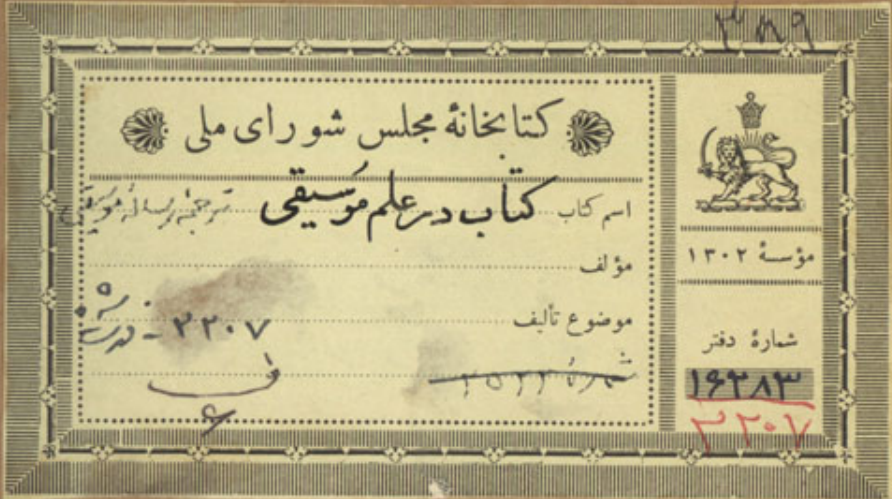 ۳۸۹
کتابخانهٔ مجلس شورای ملی
اسم کتاب کتاب در علم موسیقی ترجمهٔ رسالهٔ موسیقی
مؤلف
موضوع تألیف
۳۲۰۷
مؤسسهٔ ۱۳۰۲
شمارهٔ دفتر
۱۶۲۸۳
۳۲۰۷